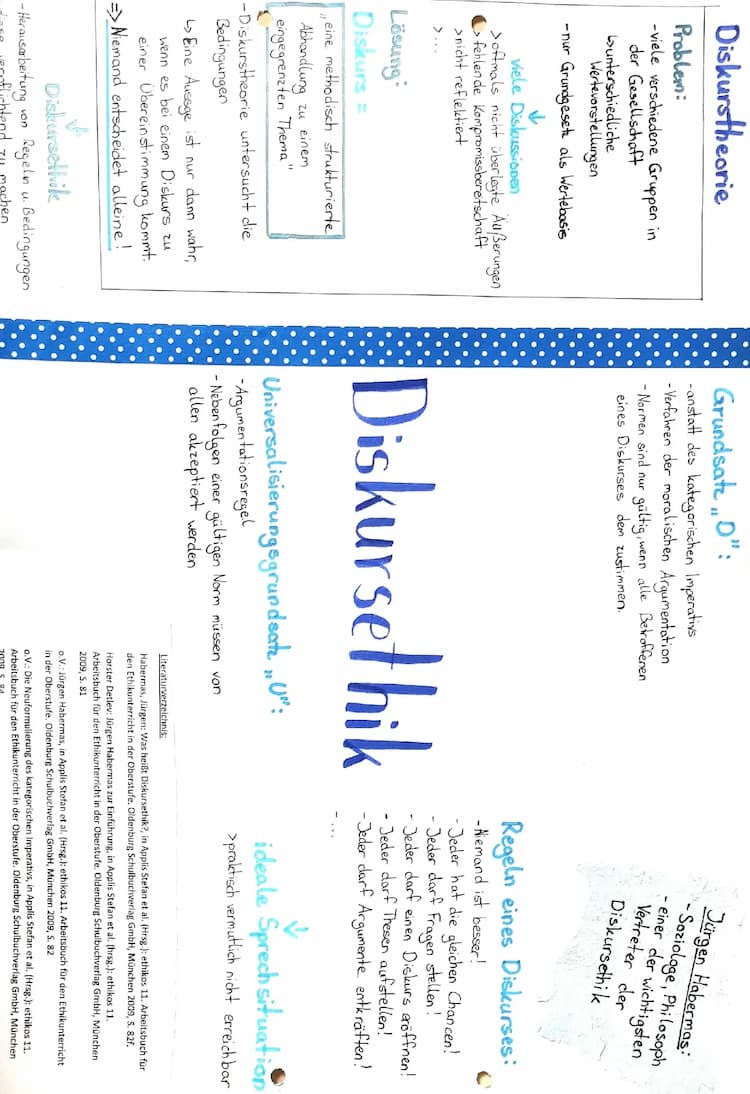 Diskurstheorie
Problem:
- viele verschiedene Gruppen in
der Gesellschaft
↳ unterschiedliche
Wertevorstellungen
- nur Grundgesetz als Wertebasis
↓
viele Diskussionen
> oftmals nicht überlegte Äußerungen
> fehlende Kompromissbereitschaft
> nicht reflektiert
> ...
Lösung:
Diskurs =
„eine methodisch strukturierte
Abhandlung zu einem
eingegrenzten Thema"
- Diskurstheorie untersucht die
Bedingungen
↳ Eine Aussage ist nur dann wahr,
wenn es bei einem Diskurs zu
einer Übereinstimmung kommt.
⇒ Niemand entscheidet alleine!
↓
Diskursethik
- Herausarbeitung von Regeln u. Bedingungen
diese verpflichtend zu machen
Grundsatz „D":
- anstatt des kategorischen Imperativs
- Verfahren der moralischen Argumentation
- Normen sind nur gültig, wenn alle Betroffenen
eines Diskurses dem zustimmen.
Diskursethik
Universalisierungsgrundsatz „U":
- Argumentationsregel
- Nebenfolgen einer gültigen Norm müssen von
allen akzeptiert werden
Jürgen Habermas:
- Soziologe, Philosoph
- einer der wichtigsten
Vertreter der
Diskursethik
Regeln eines Diskurses:
- Niemand ist besser!
- Jeder hat die gleichen Chancen!
- Jeder darf Fragen stellen!
- Jeder darf einen Diskurs eröffnen!
- Jeder darf Thesen aufstellen!
- Jeder darf Argumente entkräften!
- ...
↓
ideale Sprechsituation
> praktisch vermutlich nicht erreichbar
Literaturverzeichnis:
Habermas, Jürgen: Was heißt Diskursethik?, in Applis Stefan et al. (Hrsg.): ethikos 11. Arbeitsbuch für
den Ethikunterricht in der Oberstufe. Oldenburg Schulbuchverlag GmbH, München 2009, S. 82f.
Horster Detlev: Jürgen Habermas zur Einführung, in Applis Stefan et al. (Hrsg.): ethikos 11.
Arbeitsbuch für den Ethikunterricht in der Oberstufe. Oldenburg Schulbuchverlag GmbH, München
2009, S. 81
o.V.: Jürgen Habermas, in Applis Stefan et al. (Hrsg.): ethikos 11. Arbeitsbuch für den Ethikunterricht
in der Oberstufe. Oldenburg Schulbuchverlag GmbH, München 2009, S. 82
o.V.: Die Neuformulierung des kategorischen Imperativs, in Applis Stefan et al. (Hrsg.): ethikos 11.
Arbeitsbuch für den Ethikunterricht in der Oberstufe. Oldenburg Schulbuchverlag GmbH, München
2009, S. 84